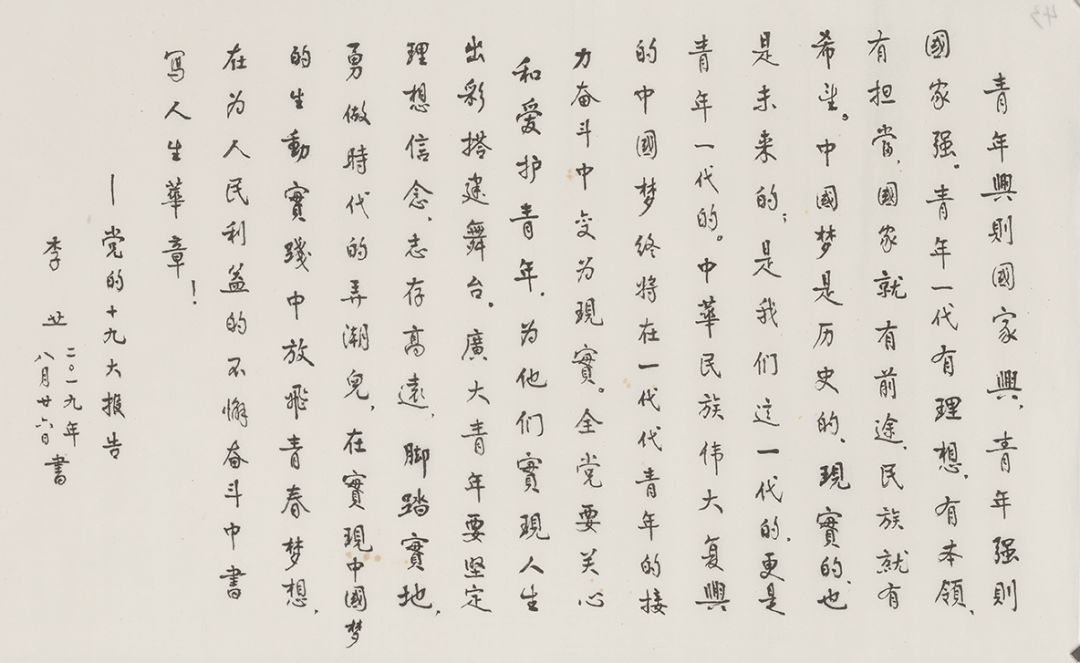 青年興則國家興，青年强則
國家强。青年一代有理想，有本領，
有担當，國家就有前途，民族就有
希望。中國梦是历史的、現實的，也
是未来的；是我们这一代的，更是
青年一代的。中華民族伟大复興
的中國梦终将在一代代青年的接
力奋斗中变为現實。全党要关心
和爱护青年，为他们實現人生
出彩搭建舞台。廣大青年要坚定
理想信念，志存高遠，脚踏實地，
勇做時代的弄潮兒，在實現中國梦
的生動實踐中放飛青春梦想，
在为人民利益的不懈奋斗中書
寫人生華章！
—党的十九大报告
李
二〇一九年
八月廿六日書